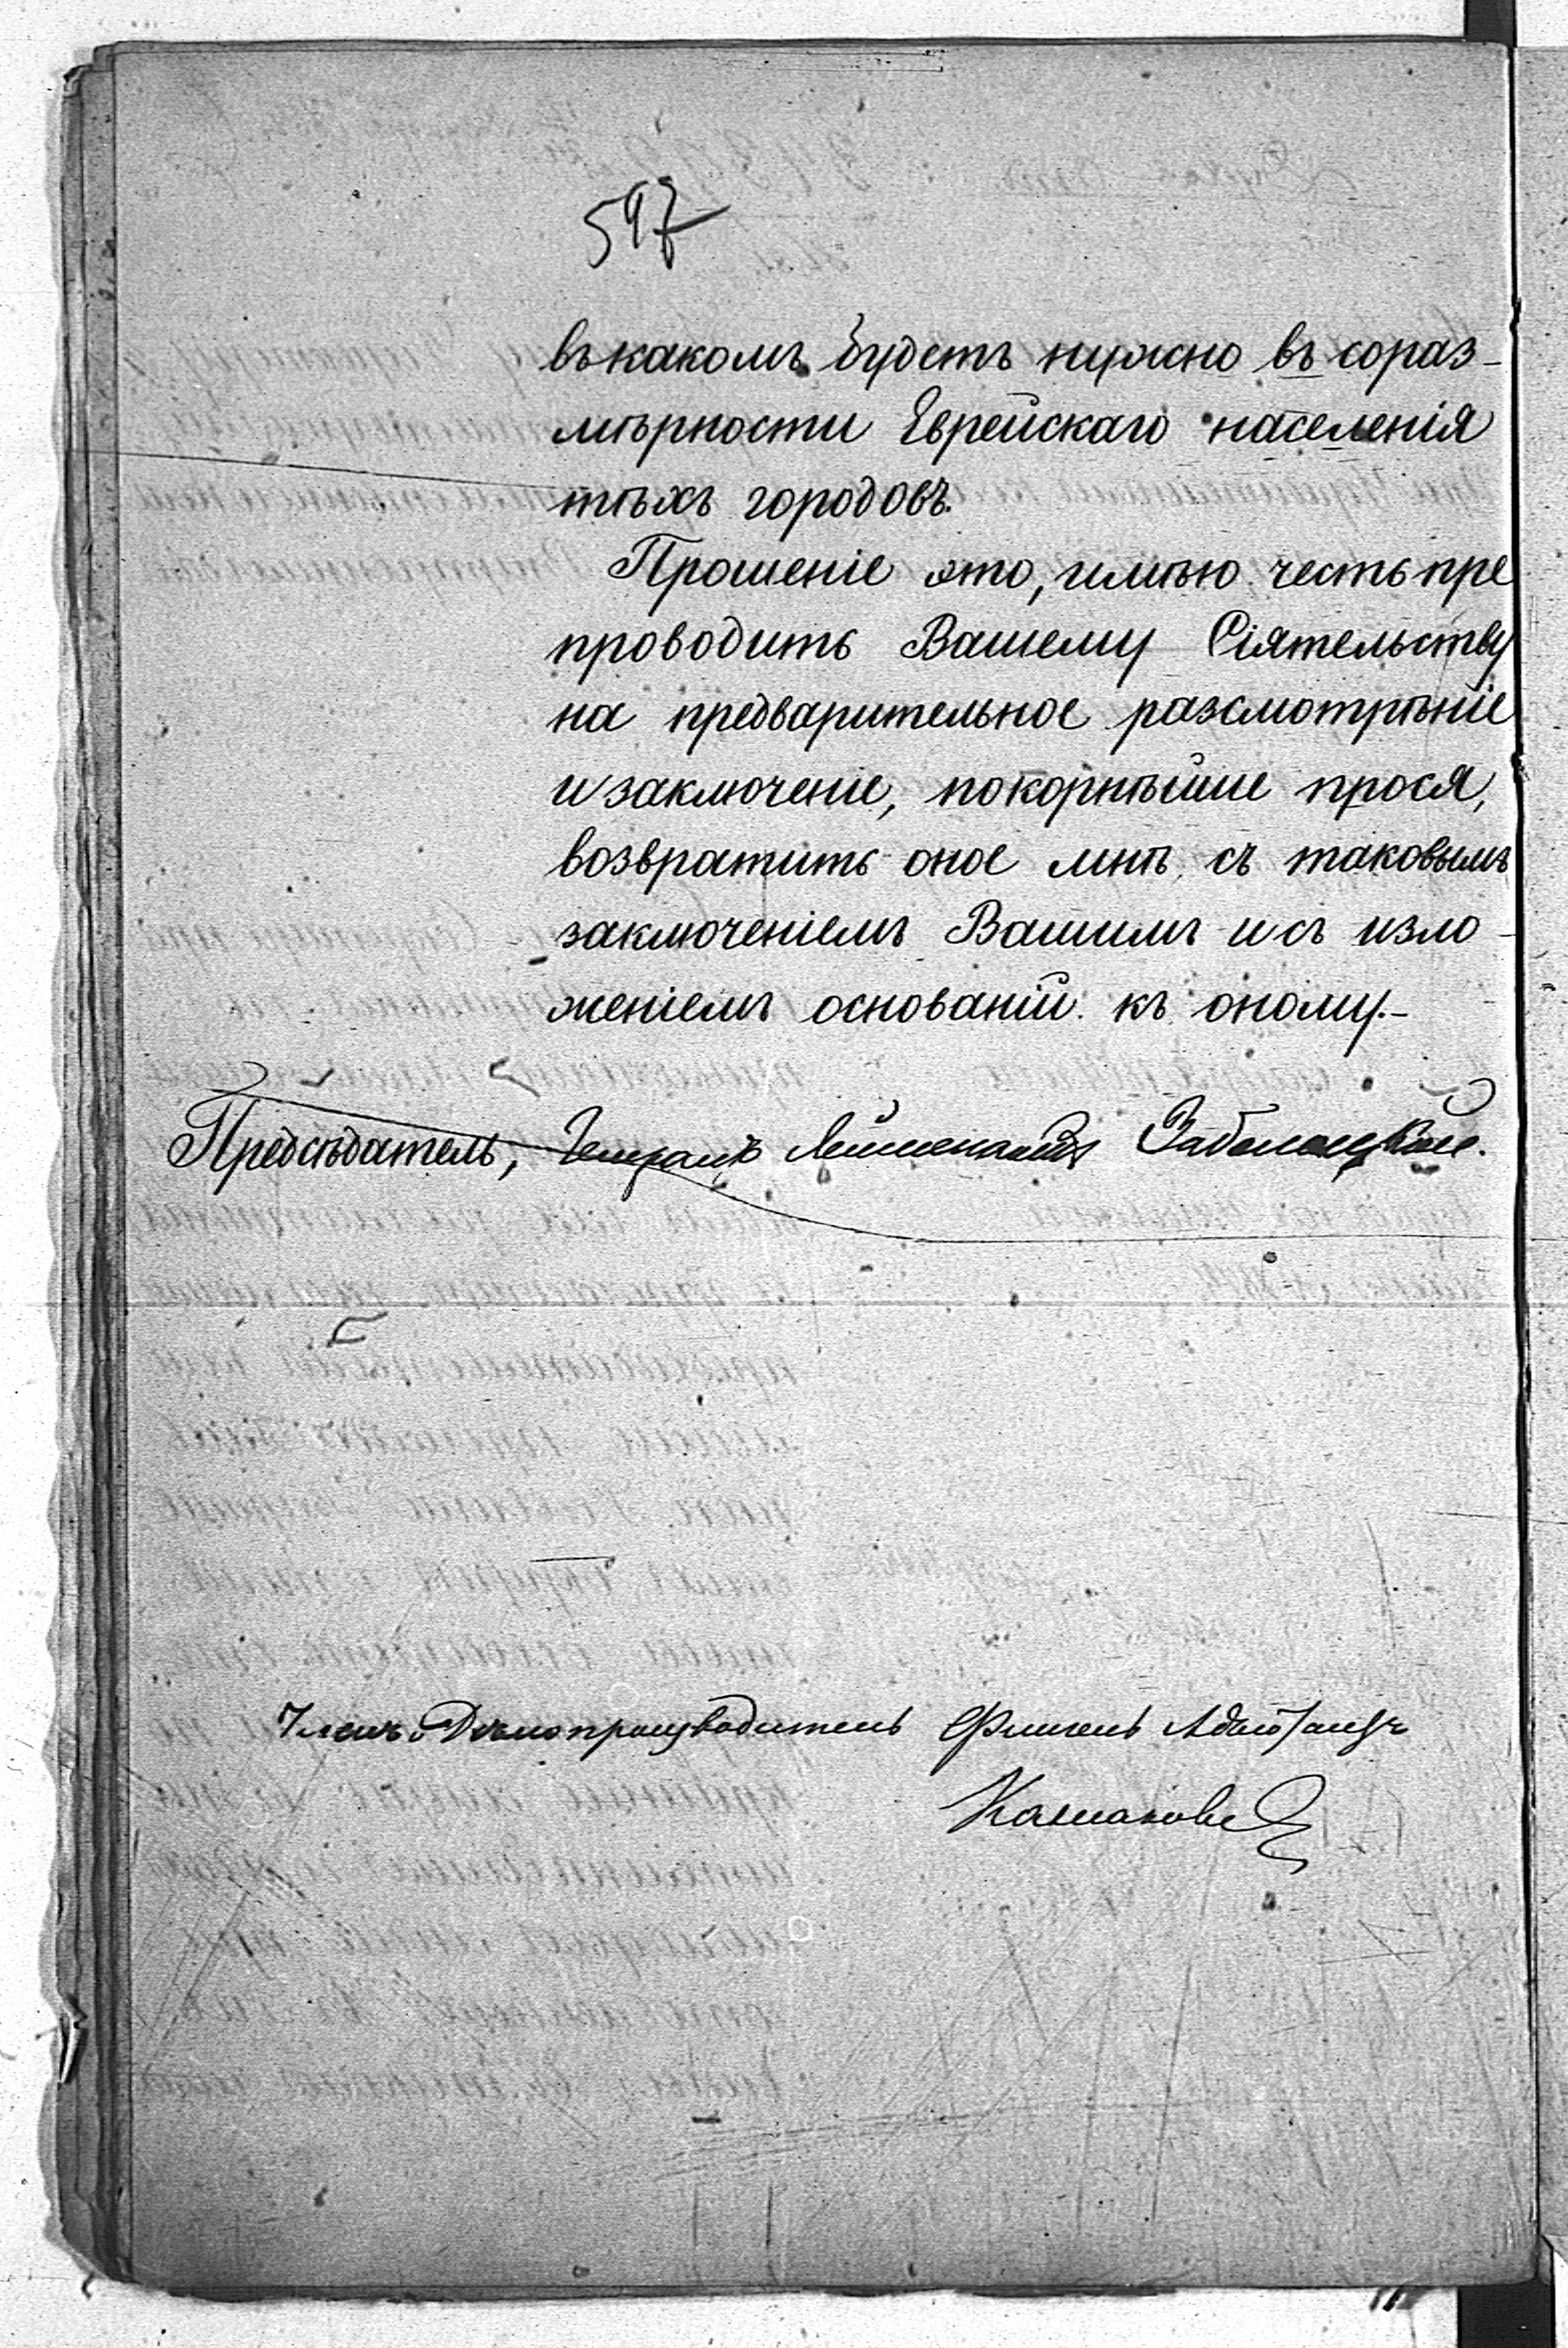 597
въ какомъ будетъ нужно въ сораз-
мѣрности Еврейскаго населенія
тѣхъ городовъ.
Прошеніе это, имѣю честь пре
проводить Вашему Сіятельству
на предварительное разсмотрѣніе
и заключеніе, покорнѣйше прося,
возвратить оное мнѣ съ таковымъ
заключеніемъ Вашимъ и съ изло-
женіемъ основаній къ оному.-
Предсѣдатель, Генералъ Лейтенантъ Заболоцкій.
Членъ Дѣлопроизводитель Флигель Адъютантъ